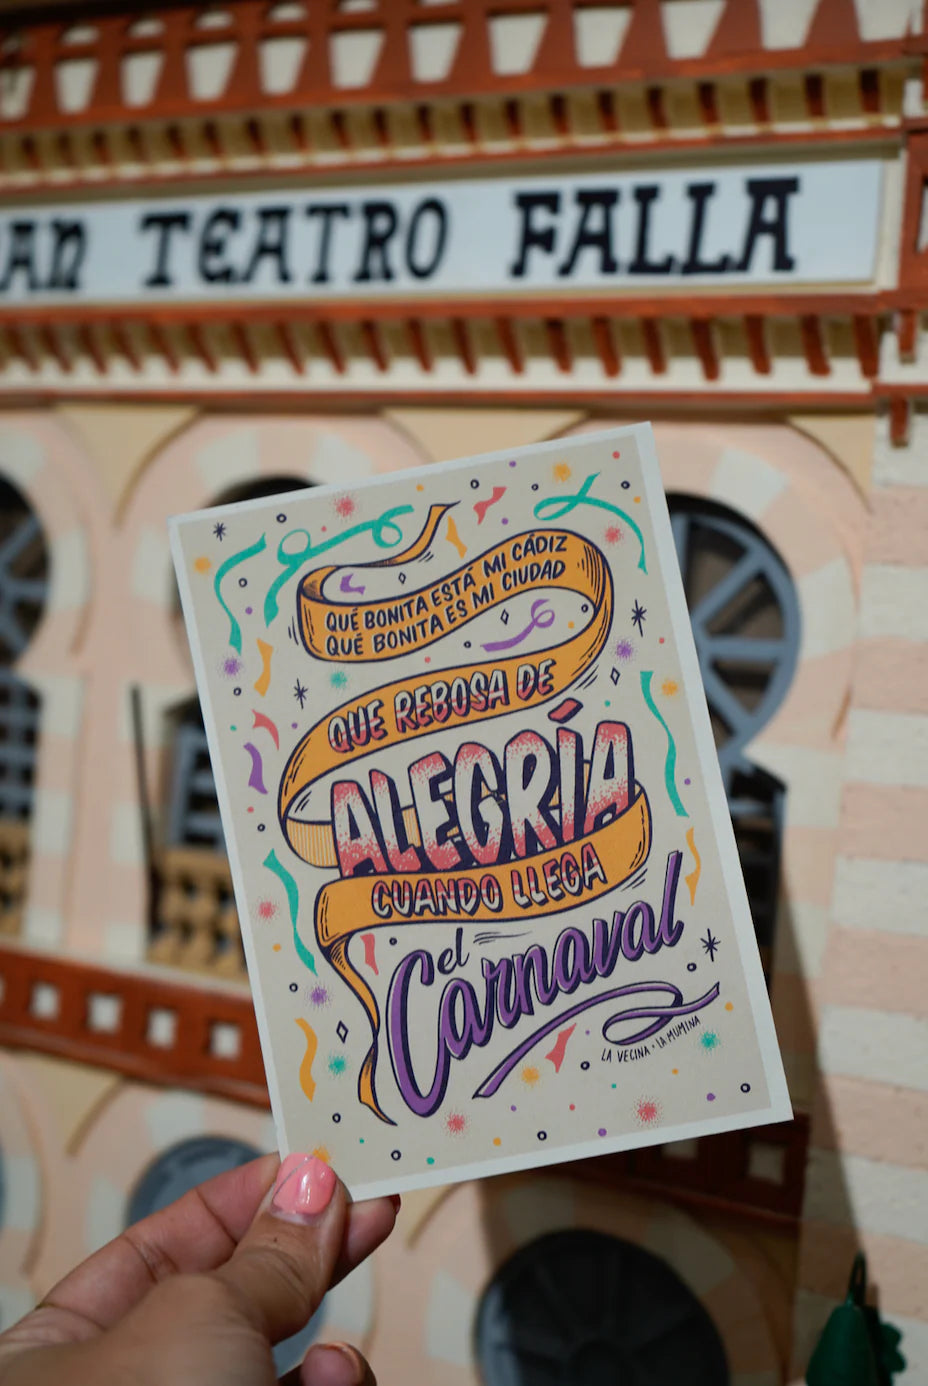 AN TEATRO FALLA
QUÉ BONITA ESTÁ MI CÁDIZ
QUÉ BONITA ES MI CIUDAD
QUE REBOSA DE
ALEGRÍA
CUANDO LLEGA
el
Carnaval
LA VECINA · LA MUMINA